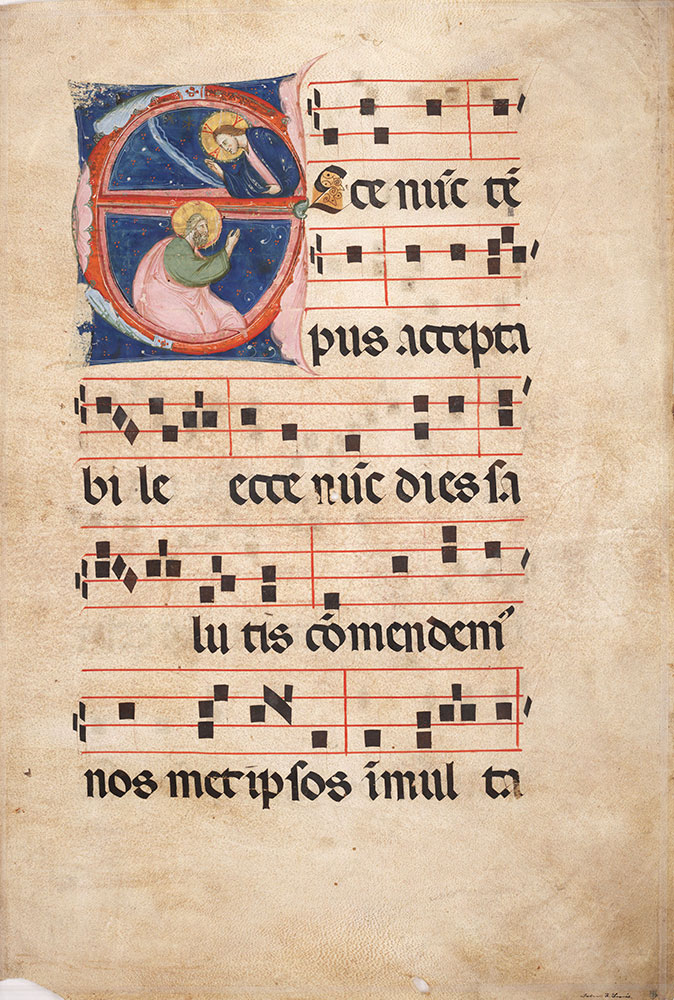 Ecce nu̅c te̅
pus accepta
bi le ecce nu̅c dies sa
lu tis co̅mendem᾽
nos met ipsos i̅mul ta